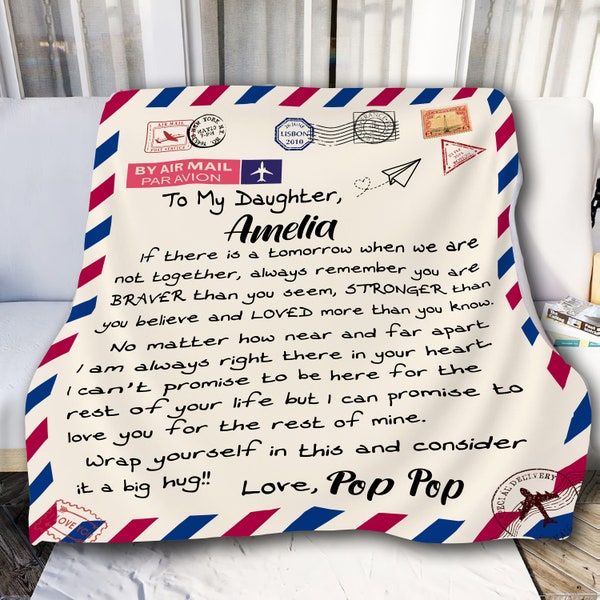 AIR MAIL
POST SERVICE
LISBON
2010
BY AIR MAIL
PAR AVION
To My Daughter,
Amelia
If there is a tomorrow when we are
not together, always remember you are
BRAVER than you seem, STRONGER than
you believe and LOVED more than you know.
No matter how near and far apart
I am always right there in your heart
I can't promise to be here for the
rest of your life but I can promise to
love you for the rest of mine.
Wrap yourself in this and consider
it a big hug!!
Love, Pop Pop
SPECIAL DELIVERY